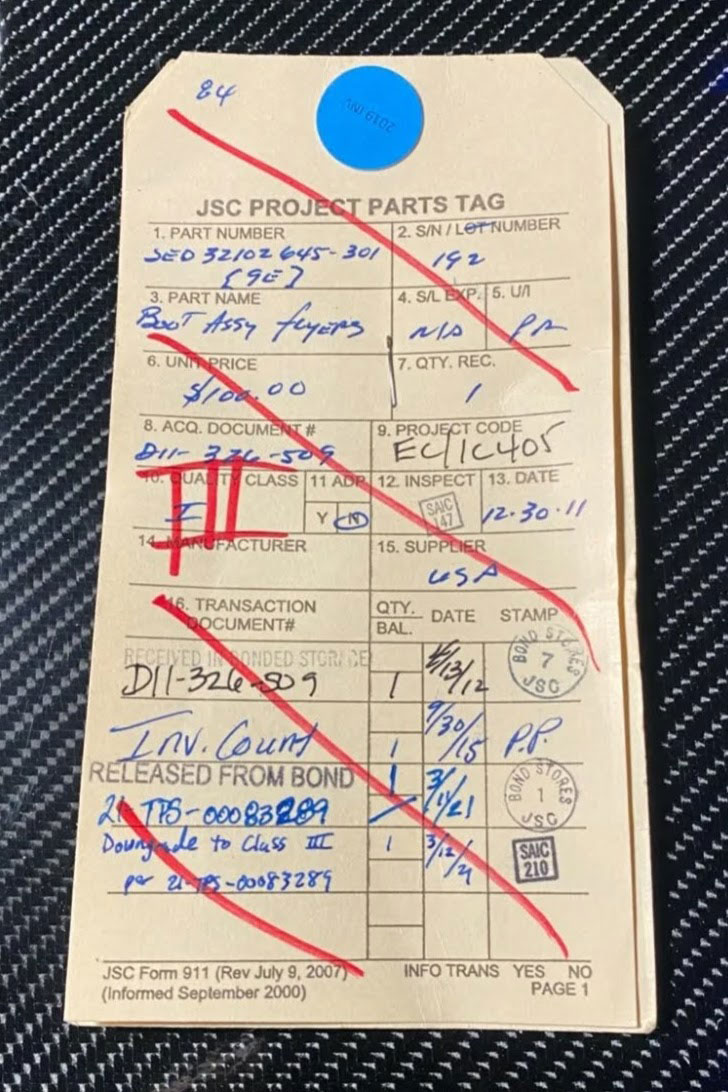 84
2019 INV
JSC PROJECT PARTS TAG
1. PART NUMBER
SED 32102645-301
[9E]
2. S/N / LOT NUMBER
192
3. PART NAME
BOOT ASSY flyers
4. S/L EXP.
N/A
5. U/I
PR
6. UNIT PRICE
$100.00
7. QTY. REC.
1
8. ACQ. DOCUMENT #
D11-326-509
9. PROJECT CODE
EC/1C405
10. QUALITY CLASS
I
III
11 ADP
Y N
12. INSPECT
SAIC
147
13. DATE
12-30-11
14. MANUFACTURER
15. SUPPLIER
USA
16. TRANSACTION
DOCUMENT#
QTY.
BAL.
DATE
STAMP
RECEIVED IN BONDED STORAGE
D11-326-509
1
/13/12
BOND STORES
7
JSC
Inv. Count
1
9/30/15
P.P.
RELEASED FROM BOND
21-TPS-00083289
1
3/11/21
BOND STORES
1
JSC
Downgrade to Class III
per 21-TPS-00083289
1
3/12/21
SAIC
210
JSC Form 911 (Rev July 9, 2007)
(Informed September 2000)
INFO TRANS YES NO
PAGE 1